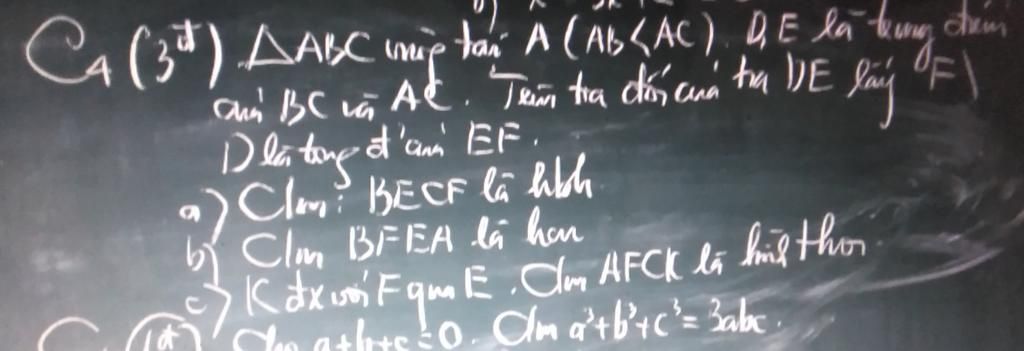 C4 (3đ) △ABC vuông tại A (AB<AC). D, E là trung điểm
của BC và AC. Trên tia đối của tia DE lấy F|
D là trung đ' của EF.
a) Clm: BECF là hbh
b) Clm BFEA là hcn
c) K đx với F qua E. Clm AFCK là hình thoi.
(1đ) Cho a+b+c=0. Clm a³+b³+c³=3abc.